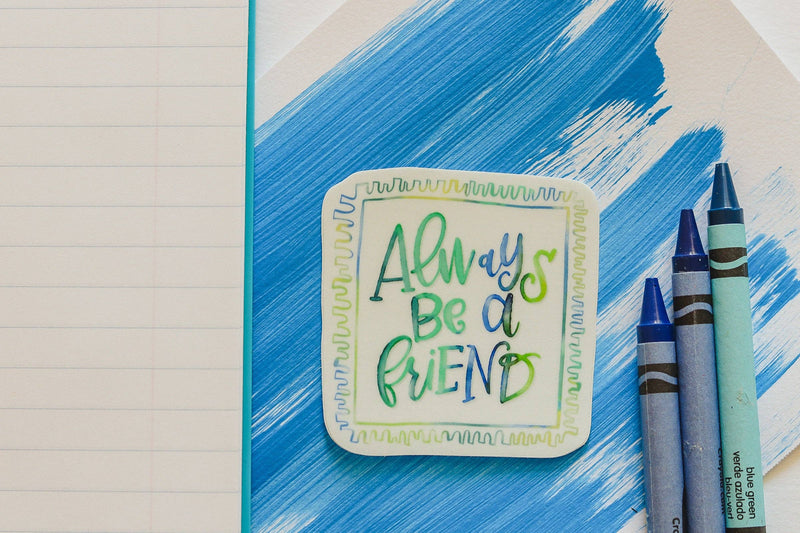 Always
Be a
friEND
blue green
verde azulado
bleu-vert